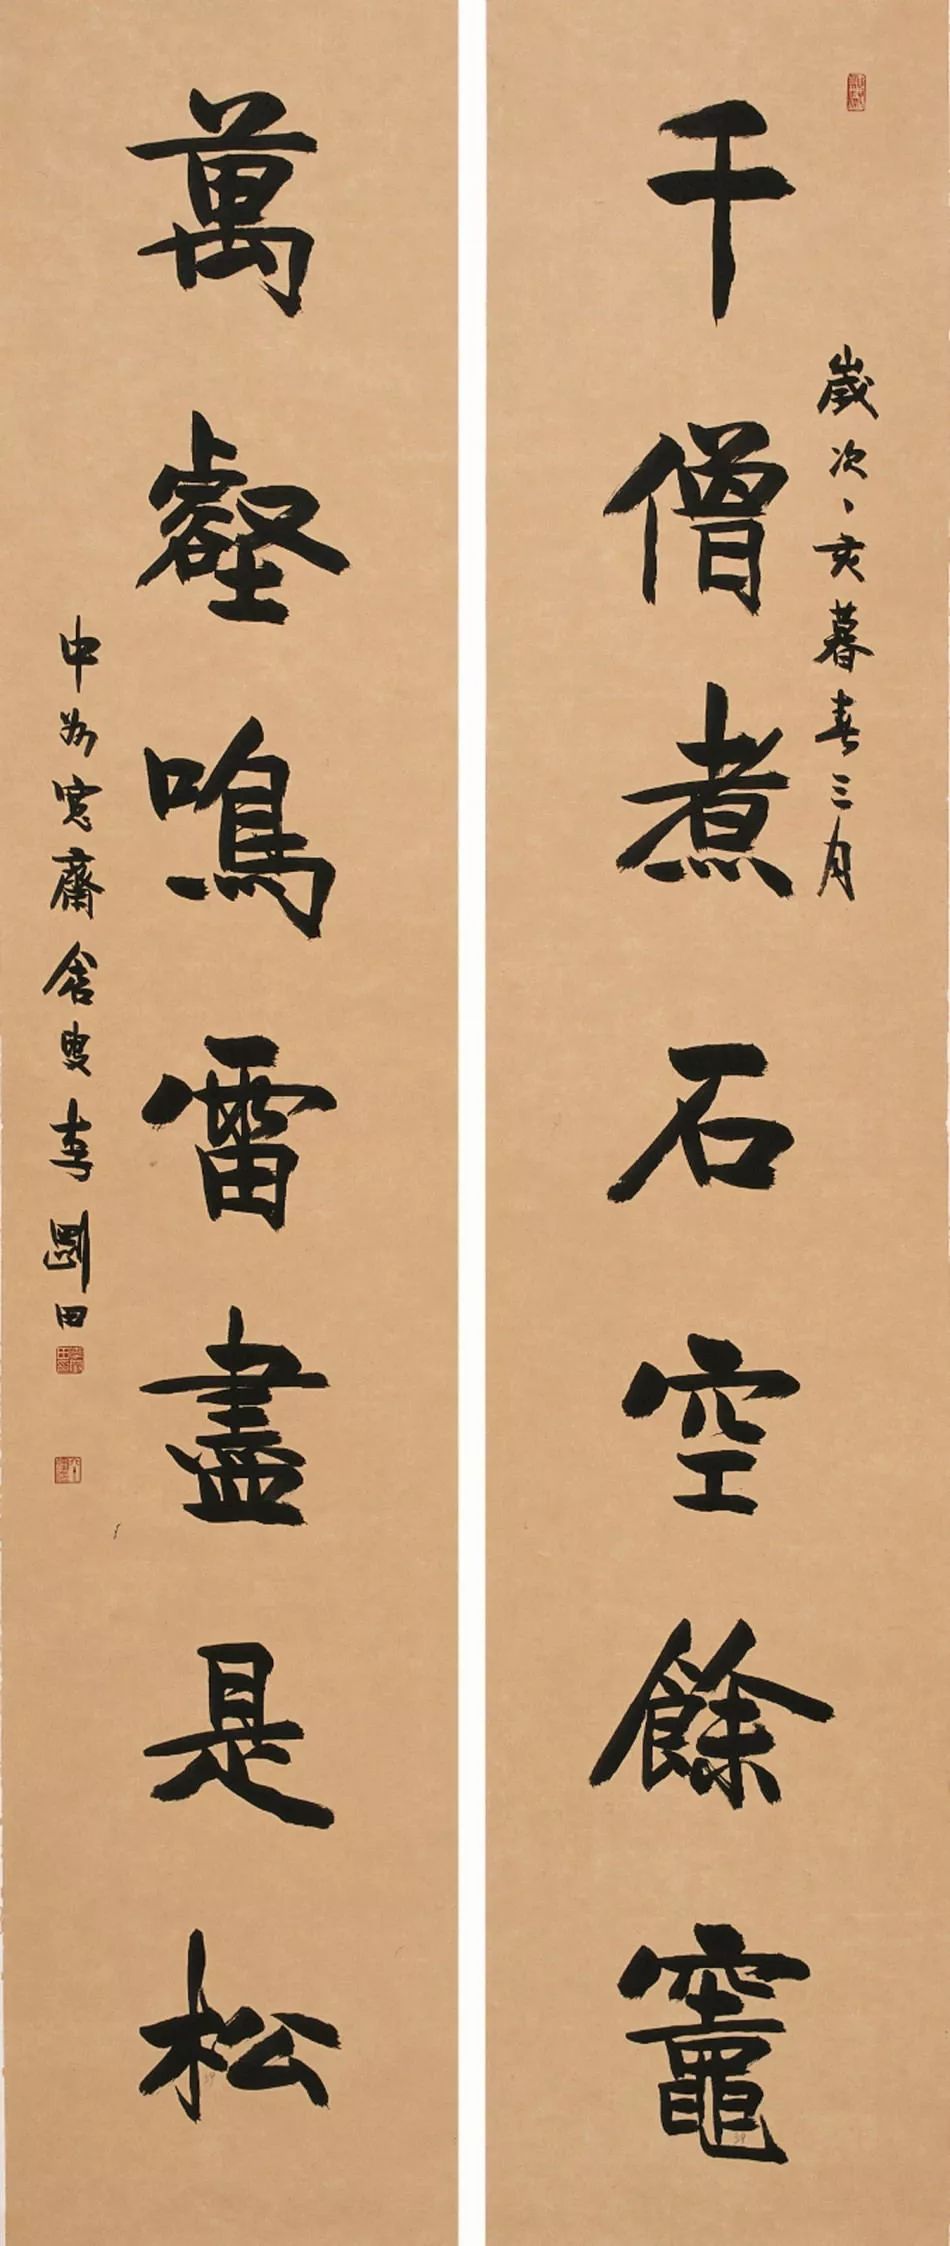 千僧煮石空餘竈
歲次亥暮春三月
萬壑鳴雷盡是松
中州寬齋舍叟李剛田